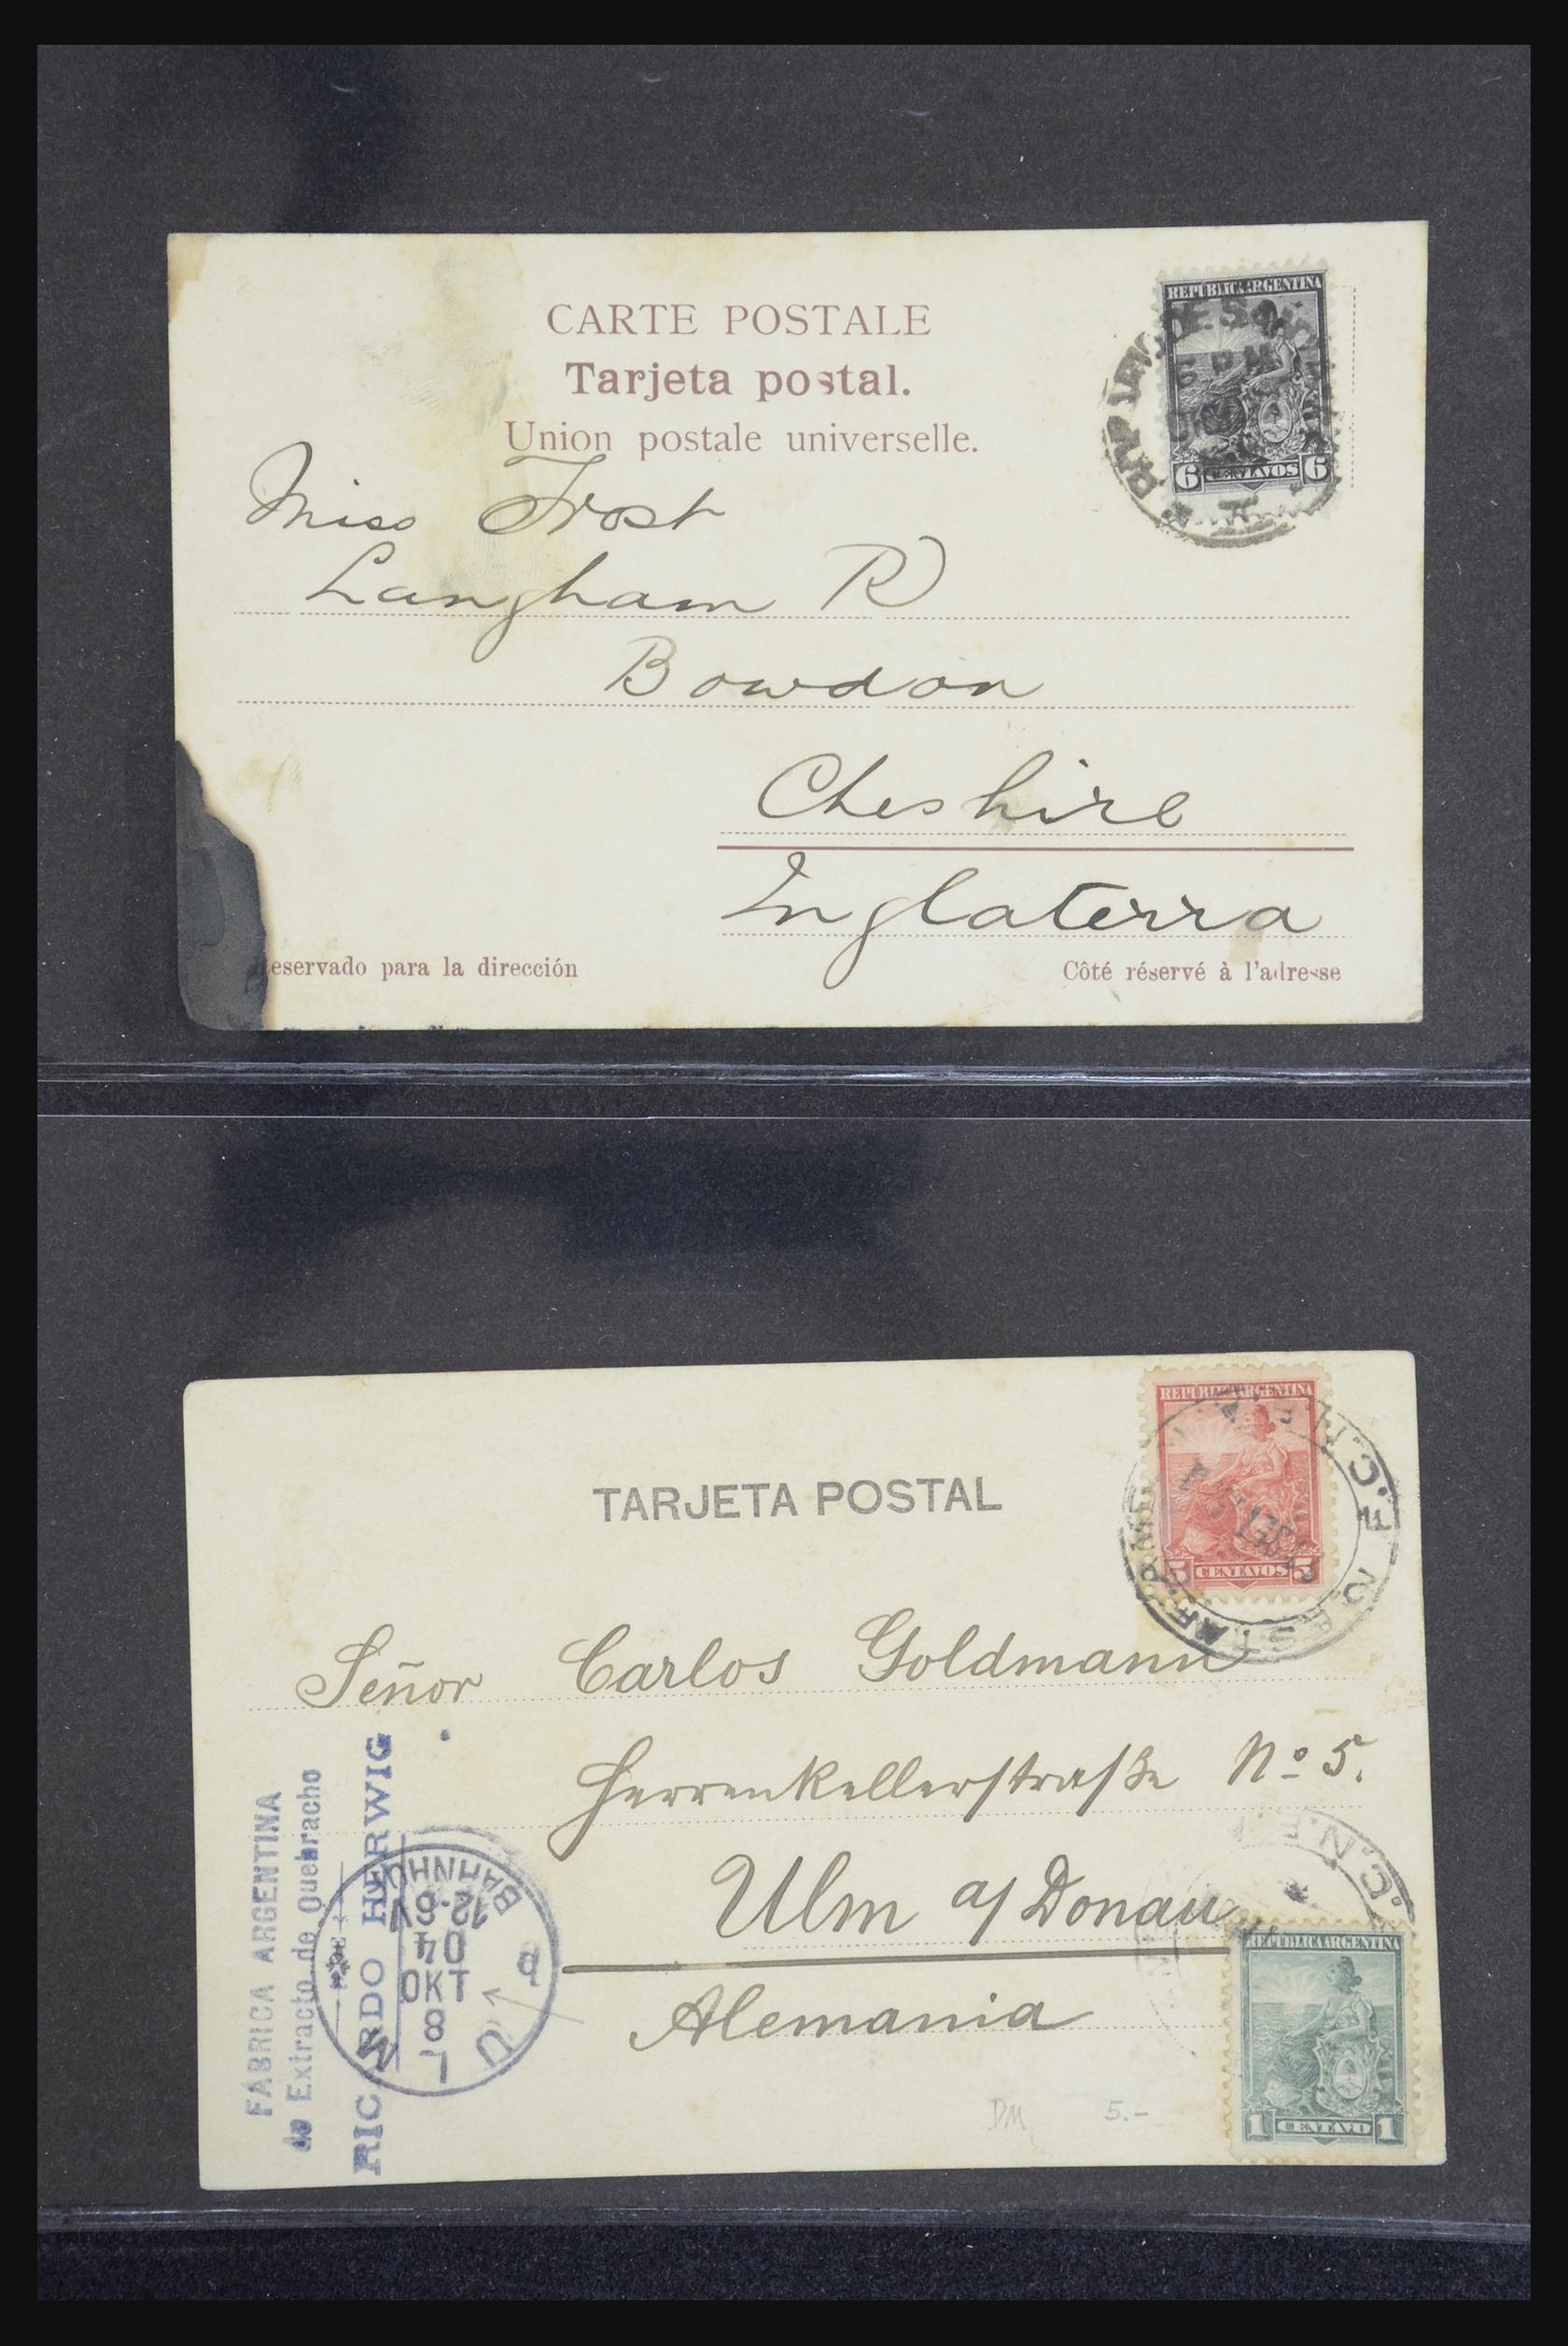 CARTE POSTALE
Tarjeta postal.
Union postale universelle.
REPUBLICA ARGENTINA
6 CENTAVOS 6
Miss Frost
Langham R
Bowdon
Cheshire
Inglaterra
eservado para la dirección
Côté réservé à l'adresse
REPUBLICA ARGENTINA
5 CENTAVOS 5
ESTAFETA
TARJETA POSTAL
Señor Carlos Goldmann
Herrenkellerstraße No 5.
Ulm a/ Donau
Alemania
FABRICA ARGENTINA
de Extracto de Quebracho
RICARDO HERWIG
ULM
8 OKT 04
12-6V
b
BAHNHOF
REPUBLICA ARGENTINA
1 CENTAVO 1
DM 5.-